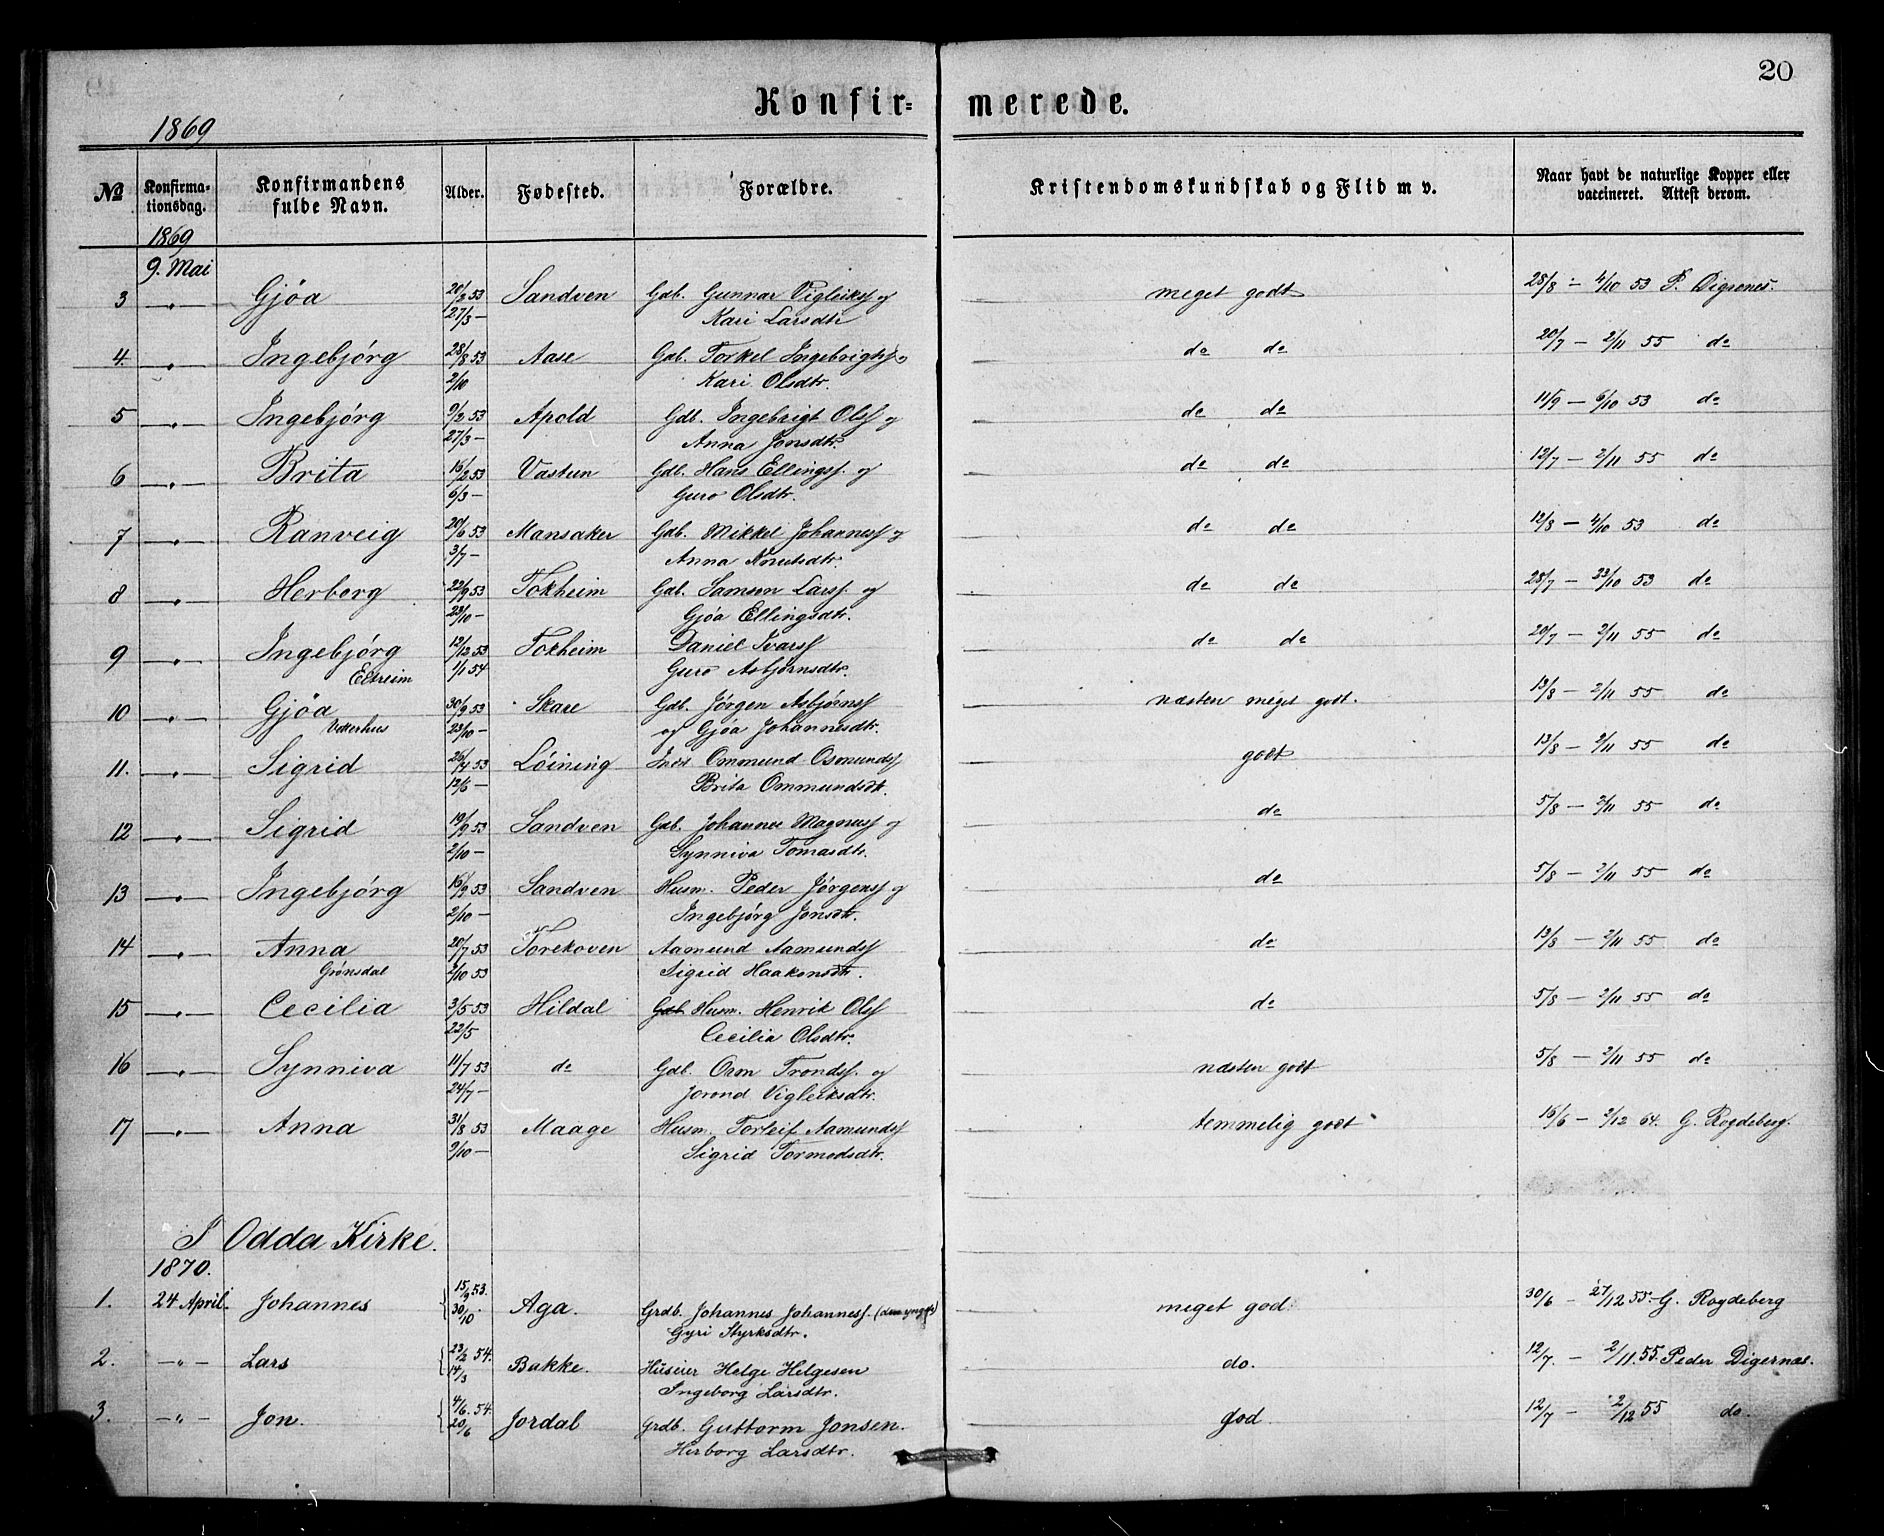 20
Konfir= merede.
1869
No Konfirma-tionsdag. Konfirmandens fulde Navn. Alder. Fødested. Forældre. Kristendomskundskab og Flid m v. Naar havt de naturlige Kopper eller vaccineret. Attest derom.
1869
9. Mai
3 —„— Gjøa 20/2 53 Sandven Gdb. Gunnar Vigleiksf og meget godt 28/8 - 4/10 53 P. Digrenes.
27/3 — Kari Larsdtr
4. —„— Ingebjørg 28/8 53 Aase Gdb. Torkel Ingebrigtsf og do do 20/7 — 2/11 55 do
2/10 Kari Olsdtr.
5 —„— Ingebjørg 9/2 53 Apold Gdb. Ingebrigt Olsf og do do 11/9 — 6/10 53 do
27/3 — Anna Jonsdtr.
6 —„— Brita 16/2 53 Vastun Gdb. Hans Ellingsf. og do do 12/7 — 2/11 55 do
6/3 — Guro Olsdtr.
7 —„— Ranveig 20/6 53 Mansaker Gdb. Mikkel Johannesf og do do 12/8 — 4/10 53 do
3/7 — Anna Knutsdtr.
8 —„— Herborg 22/9 53 Tokheim Gdb. Samson Larsf. og do do 28/7 — 23/10 53 do
23/10 — Gjøa Ellingsdtr.
9 —„— Ingebjørg 12/12 53 Tokheim Daniel Ivarsf do do 20/7 — 2/11 55 do
Eitreim 1/1 54 Guro Asbjørnsdtr.
10 —„— Gjøa 30/9 53 Skare Gdb. Jørgen Asbjørnsf næsten meget godt. 13/8 — 2/11 55 do
Vetterhus 23/10 — og Gjøa Johannesdtr.
11. —„— Sigrid 26/4 53 Løining Ommund Osmundsf godt 13/8 — 2/11 55 do
12/6 — Brita Ommundsdt.
12 —„— Sigrid 19/9 53 Sandven Gdb. Johannes Magnusf og do 5/8 — 2/11 55 do
2/10 — Synniva Tomasdtr.
13 —„— Ingebjørg 16/9 53 Sandven Husm. Peder Jørgensf og do 5/8 — 2/11 55 do
2/10 — Ingebjørg Jonsdt.
14 —„— Anna 20/7 53 Torekoven Aamund Aamundsf do 13/8 — 2/11 55 do
Grønsdal 2/10 53 Sigrid Haakonsdtr.
15 —„— Cecilia 3/5 53 Hildal Gdb. Husm. Henrik Olsf do 5/8 — 2/11 55 do
22/5 Cecilia Olsdtr.
16 —„— Synniva 11/7 53 do Gdb. Orm Trondsf. og næsten godt 5/8 — 2/11 55 do
24/7 — Jorond Vigleiksdtr.
17 —„— Anna 31/8 53 Maage Husm. Torleif Aamundsf temmelig godt 16/6 — 2/12 64. G. Rogdeberg.
9/10 — Sigrid Tormodsdtr.
I Odda Kirke.
1870.
1. 24 April Johannes 15/9 53. Aga. Grdb. Johannes Johannesf. (den yngste) meget god. 30/6 — 27/12 55. G. Rogdeberg
30/10. Gyri Styrksdtr.
2. —„— Lars 23/2 54. Bakke. Huseier Helge Helgesen do. 12/7. — 2/11. 55. Peder Digernæs.
14/3 Ingeborg Larsdtr.
3. —„— Jon. 4/6. 54. Jordal Grdb. Guttorm Jonsen. god. 12/7 — 2/12 55 do.
20/6 Herborg Larsdtr.